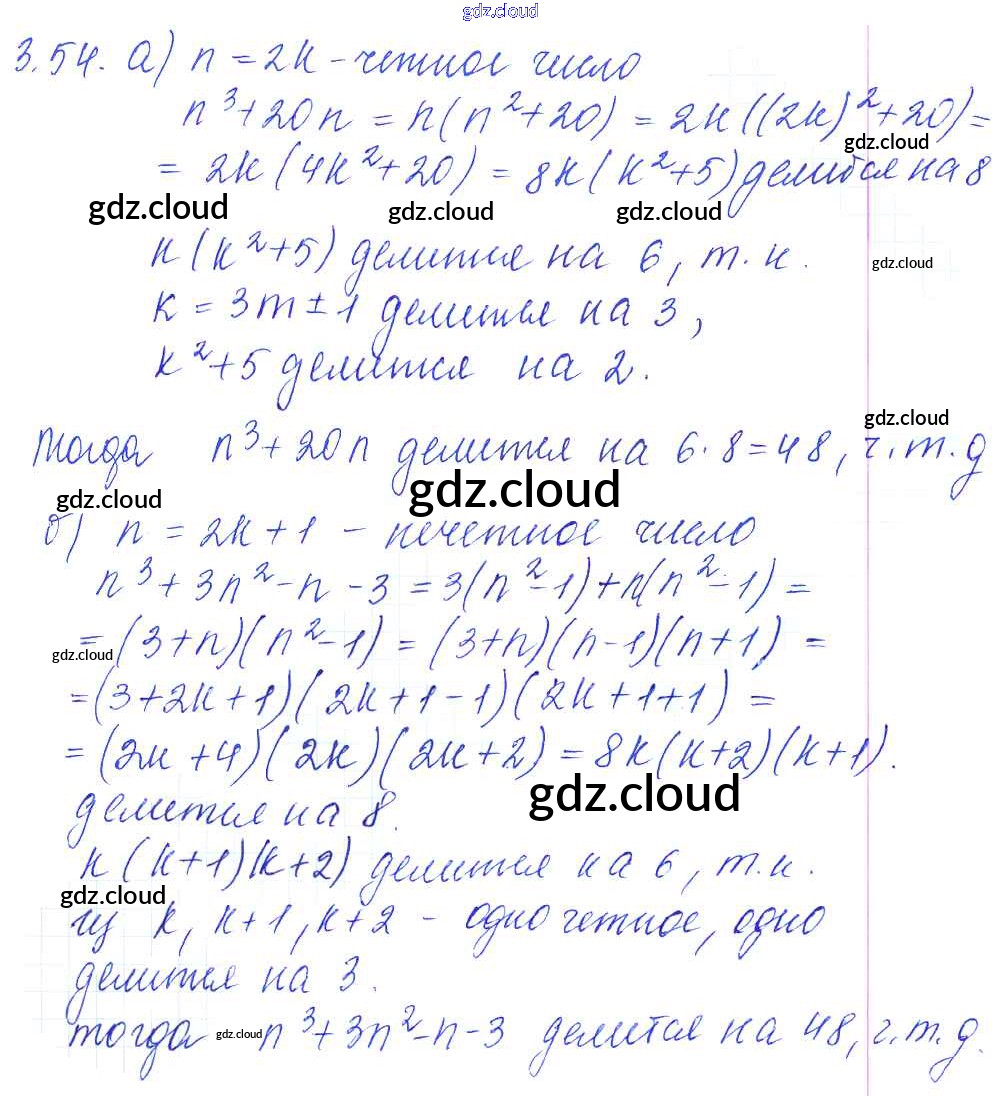 gdz.cloud
3.54. а) n = 2k - четное число
n³+20n = n(n²+20) = 2k((2k)²+20) =
gdz.cloud
= 2k(4k²+20) = 8k(k²+5) делится на 8
gdz.cloud gdz.cloud gdz.cloud
k(k²+5) делится на 6, т.к.
gdz.cloud
k = 3m ± 1 делится на 3,
k²+5 делится на 2.
gdz.cloud
Тогда n³+20n делится на 6·8=48, ч.т.д
gdz.cloud gdz.cloud
б) n = 2k+1 - нечетное число
n³+3n²-n-3 = 3(n²-1)+n(n²-1) =
gdz.cloud
= (3+n)(n²-1) = (3+n)(n-1)(n+1) =
= (3+2k+1)(2k+1-1)(2k+1+1) =
= (2k+4)(2k)(2k+2) = 8k(k+2)(k+1).
gdz.cloud
делится на 8.
k(k+1)(k+2) делится на 6, т.к.
gdz.cloud
из k, k+1, k+2 - одно четное, одно
делится на 3.
тогда n³+3n²-n-3 делится на 48, ч.т.д.
gdz.cloud